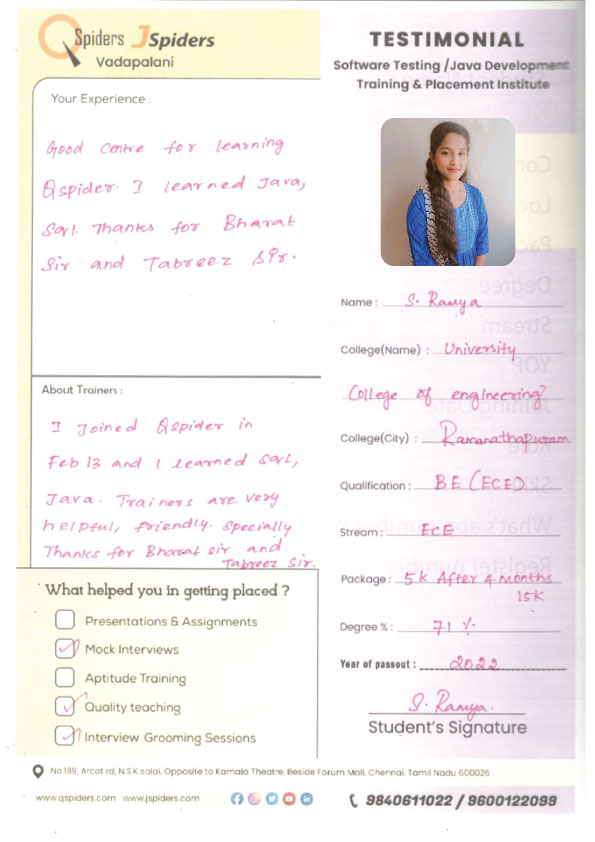 QSpiders JSpiders
Vadapalani
Your Experience :
Good Centre for learning
Qspider. I learned Java,
Sql. Thanks for Bharat
Sir and Tabreez Sir.
About Trainers :
I Joined Qspider in
Feb 13 and I learned Sql,
Java. Trainers are very
helpful, friendly. Specially
Thanks for Bharat sir and
Tabreez Sir.
What helped you in getting placed ?
Presentations & Assignments
Mock Interviews
Aptitude Training
Quality teaching
Interview Grooming Sessions
TESTIMONIAL
Software Testing /Java Development
Training & Placement Institute
Name : S. Ramya
College(Name) : University
College of engineering
College(City) : Ramanathapuram
Qualification : BE (ECE)
Stream : ECE
Package : 5k After 4 months
15k
Degree % : 71 %
Year of passout : 2022
S. Ramya.
Student's Signature
No.189, Arcot rd, N.S.K salai, Opposite to Kamala Theatre, Beside Forum Mall, Chennai, Tamil Nadu 600026
www.qspiders.com www.jspiders.com
9840611022 / 9600122099